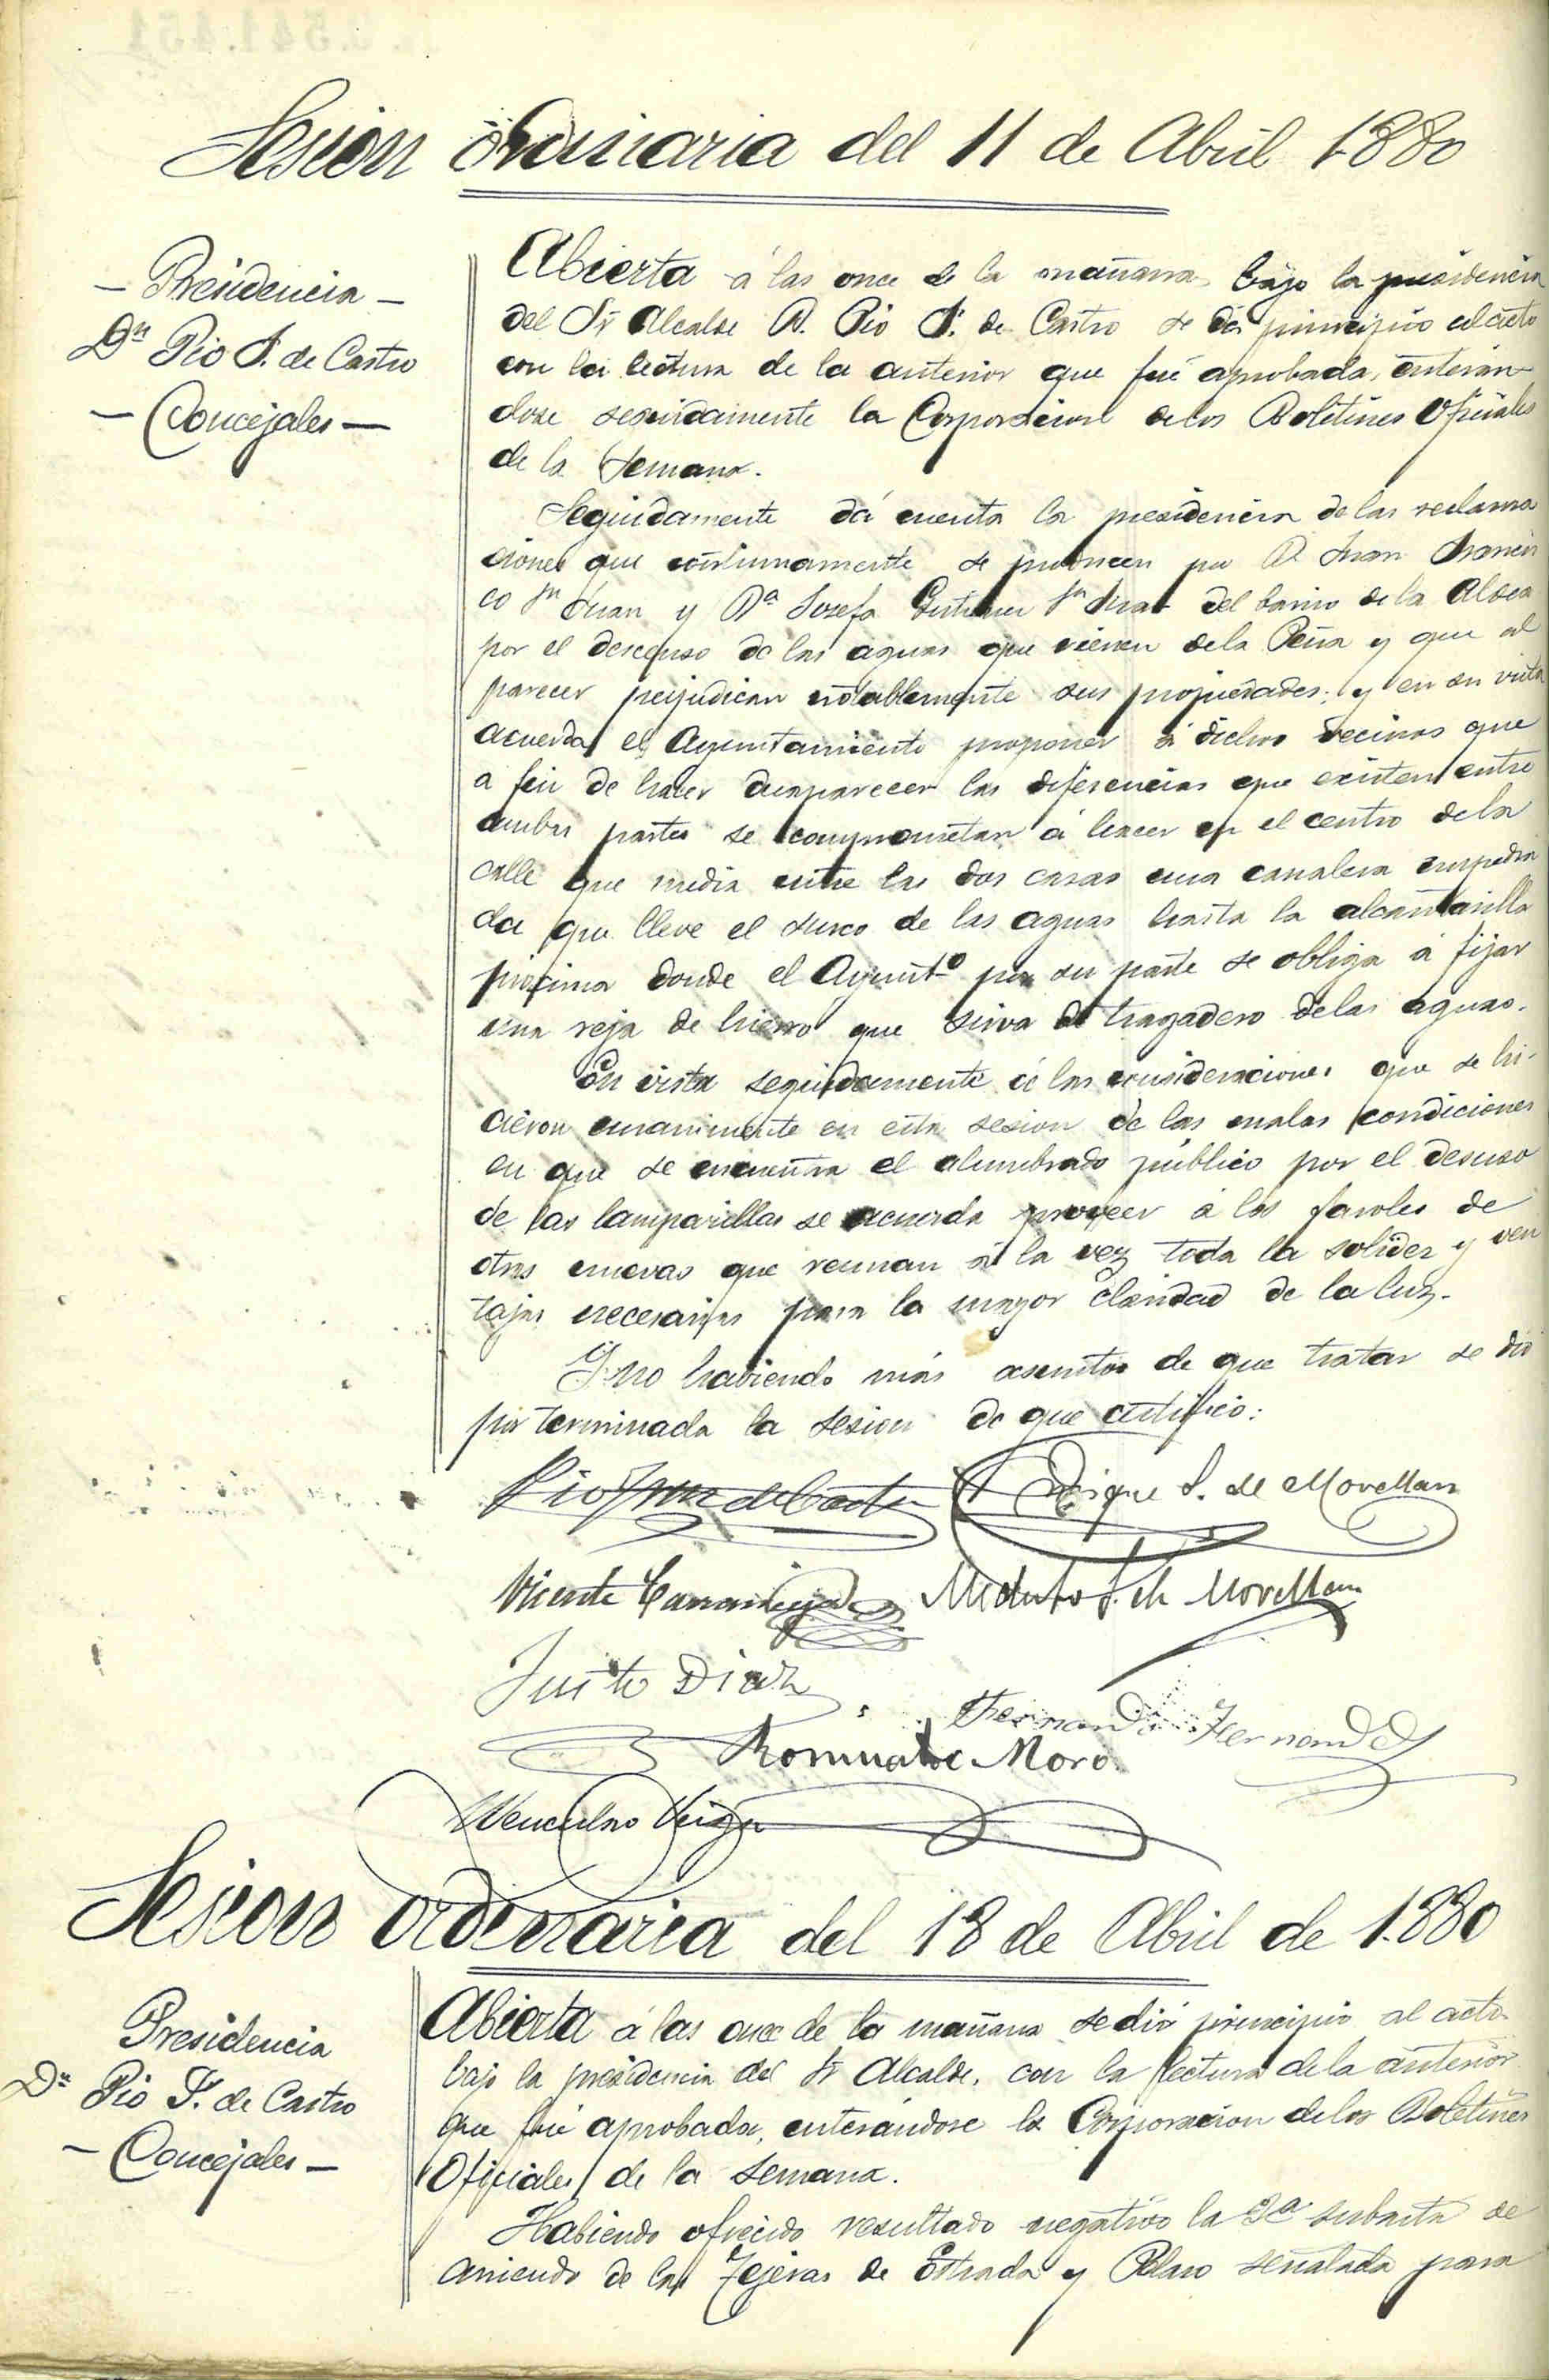 Sesion ordinaria del 11 de Abril 1880
— Presidencia —
Dn Pio S. de Castro
— Concejales —
Abierta á las once de la mañana bajo la presidencia
del Sr Alcalde D. Pio S. de Castro se dá principio al acto
con la lectura de la anterior que fué aprobada, enterán-
dose seguidamente la Corporacion de los Boletines Oficiales
de la Semana.
Seguidamente dá cuenta la presidencia de las reclama
ciones que continuamente se producen por D. Juan Francis
co Sn Juan y Da Josefa Gutierrez Sn Juan del barrio de la Aldea
por el descenso de las aguas que vienen de la Peña y que al
parecer perjudican notablemente sus propiedades; y en su vista
acuerda el Ayuntamiento proponer á dichos vecinos que
a fin de hacer desaparecer las diferencias que existen entre
ambas partes se comprometan á hacer en el centro de la
calle que media entre las dos casas una canalera empedra
da que lleve el surco de las aguas hasta la alcantarilla
próxima donde el Ayuntº por su parte se obliga á fijar
una reja de hierro que sirva de tragadero de las aguas.
En vista seguidamente á las consideraciones que se hi-
cieron unanimente en esta sesion de las malas condiciones
en que se encuentra el alumbrado público por el desuso
de las lamparillas se acuerda proveer á los faroles de
otras nuevas que reunan á la vez toda la solidez y ven
tajas necesarias para la mayor claridad de la luz.
Y no habiendo más asuntos de que tratar se dió
por terminada la sesion de que certifico:
Pio de Castro
Enrique S. de Movellan
Vicente
S. de Movellan
Justo Diaz
Fernando Fernandez
Romualdo Moro
Wenceslao Veiga
Sesion ordinaria del 18 de Abril de 1.880
Presidencia
Dn Pio S. de Castro
— Concejales —
Abierta á las once de la mañana se dió principio al acto
bajo la presidencia del Sr Alcalde, con la lectura de la anterior
que fué aprobada, enterándose la Corporacion de los Boletines
Oficiales de la semana.
Habiendo ofrecido resultado negativo la 3a subasta de
arriendo de las Tejeras de Estrada y señalada para